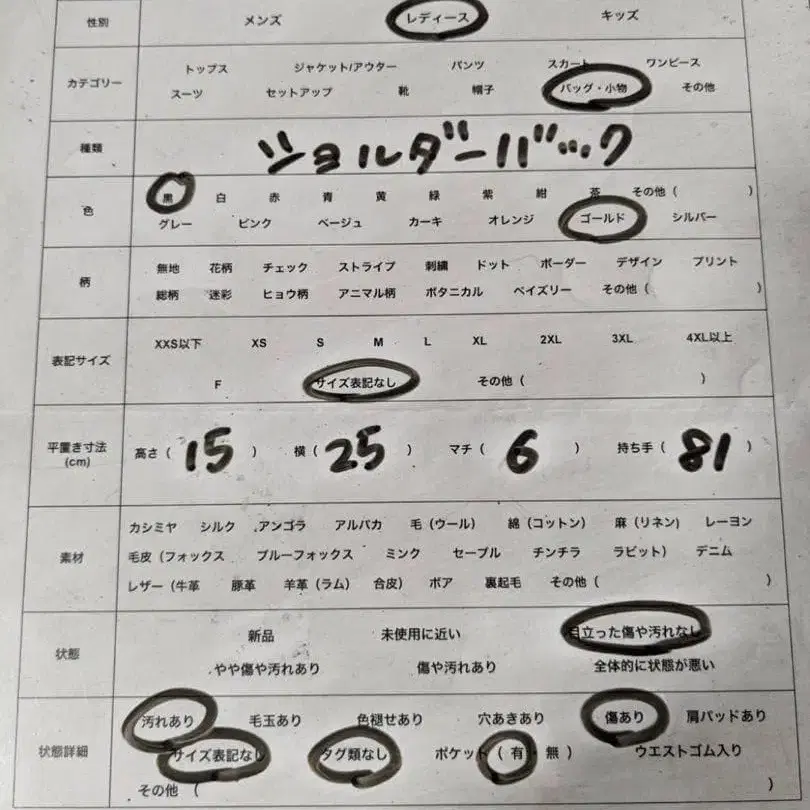 性別 メンズ レディース キッズ
カテゴリー トップス ジャケット/アウター パンツ スカート ワンピース
スーツ セットアップ 靴 帽子 バッグ・小物 その他
種類 ショルダーバック
色 黒 白 赤 青 黄 緑 紫 紺 茶 その他 ( )
グレー ピンク ベージュ カーキ オレンジ ゴールド シルバー
柄 無地 花柄 チェック ストライプ 刺繍 ドット ボーダー デザイン プリント
総柄 迷彩 ヒョウ柄 アニマル柄 ボタニカル ペイズリー その他 ( )
表記サイズ XXS以下 XS S M L XL 2XL 3XL 4XL以上
F サイズ表記なし その他 ( )
平置き寸法 (cm) 高さ ( 15 ) 横 ( 25 ) マチ ( 6 ) 持ち手 ( 81 )
素材 カシミヤ シルク アンゴラ アルパカ 毛 (ウール) 綿 (コットン) 麻 (リネン) レーヨン
毛皮 (フォックス ブルーフォックス ミンク セーブル チンチラ ラビット) デニム
レザー (牛革 豚革 羊革 (ラム) 合皮) ボア 裏起毛 その他 ( )
状態 新品 未使用に近い 目立った傷や汚れなし
やや傷や汚れあり 傷や汚れあり 全体的に状態が悪い
状態詳細 汚れあり 毛玉あり 色褪せあり 穴あきあり 傷あり 肩パッドあり
サイズ表記なし タグ類なし ポケット ( 有・無 ) ウエストゴム入り
その他 ( )